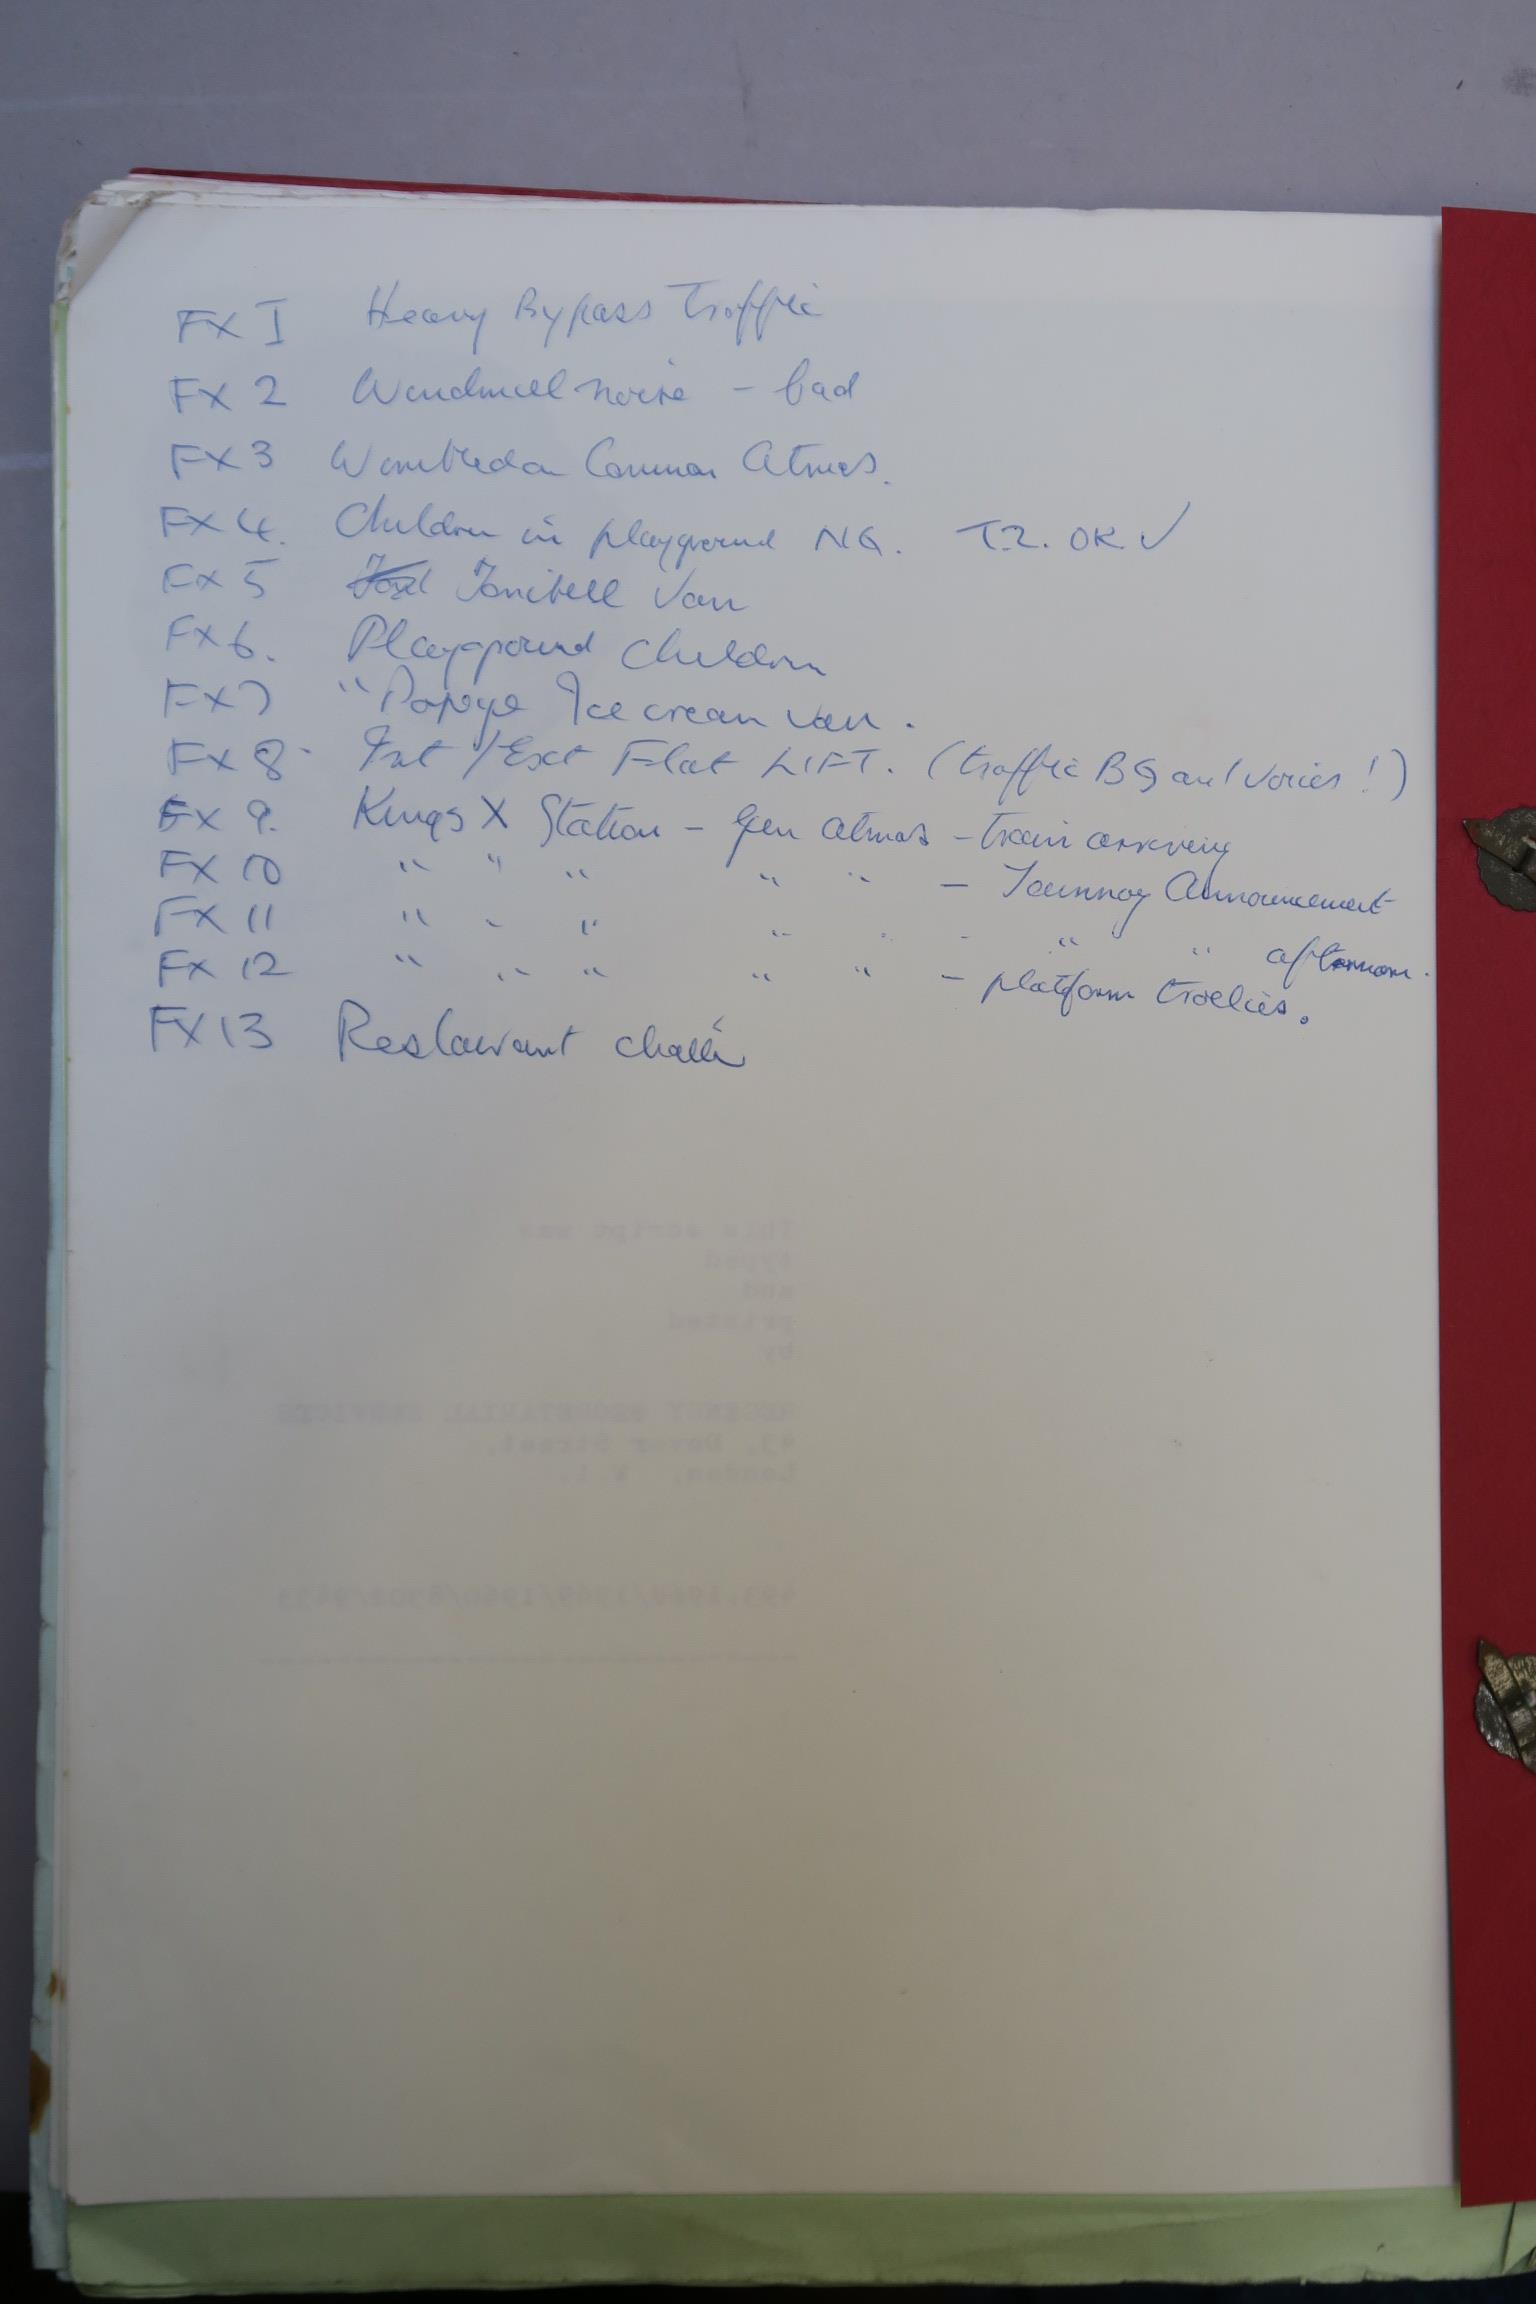 FX I Heavy Bypass Traffic
FX 2 Windmill noise - bad
FX 3 Wimbledon Common Atmos.
FX 4. Children in playground NG. T.2. OK ✓
FX 5 Tonibell Van
FX 6. Playground Children
FX 7 "Popeye Ice cream van.
FX 8 Int / Ext Flat LIFT. (traffic BG and voices!)
FX 9. Kings X Station - Gen atmos - train arriving
FX 10 " " " " " - Tannoy Announcement
FX 11 " " " " " - " " afternoon.
FX 12 " " " " " - platform trollies.
FX 13 Restaurant chatter
This script was
typed
and
printed
by
REGENCY SECRETARIAL SERVICES
43, Dover Street,
London, W.1.